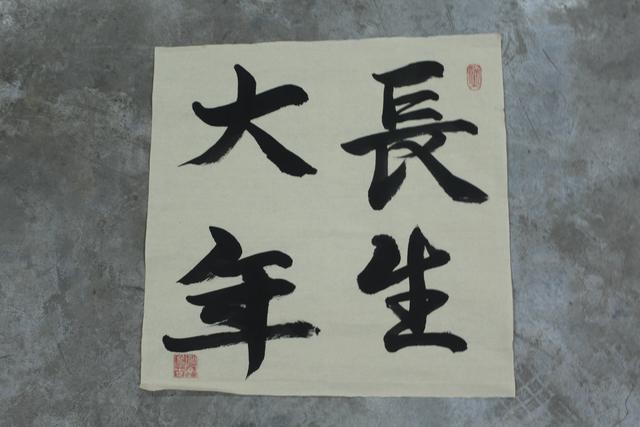 長生
大年